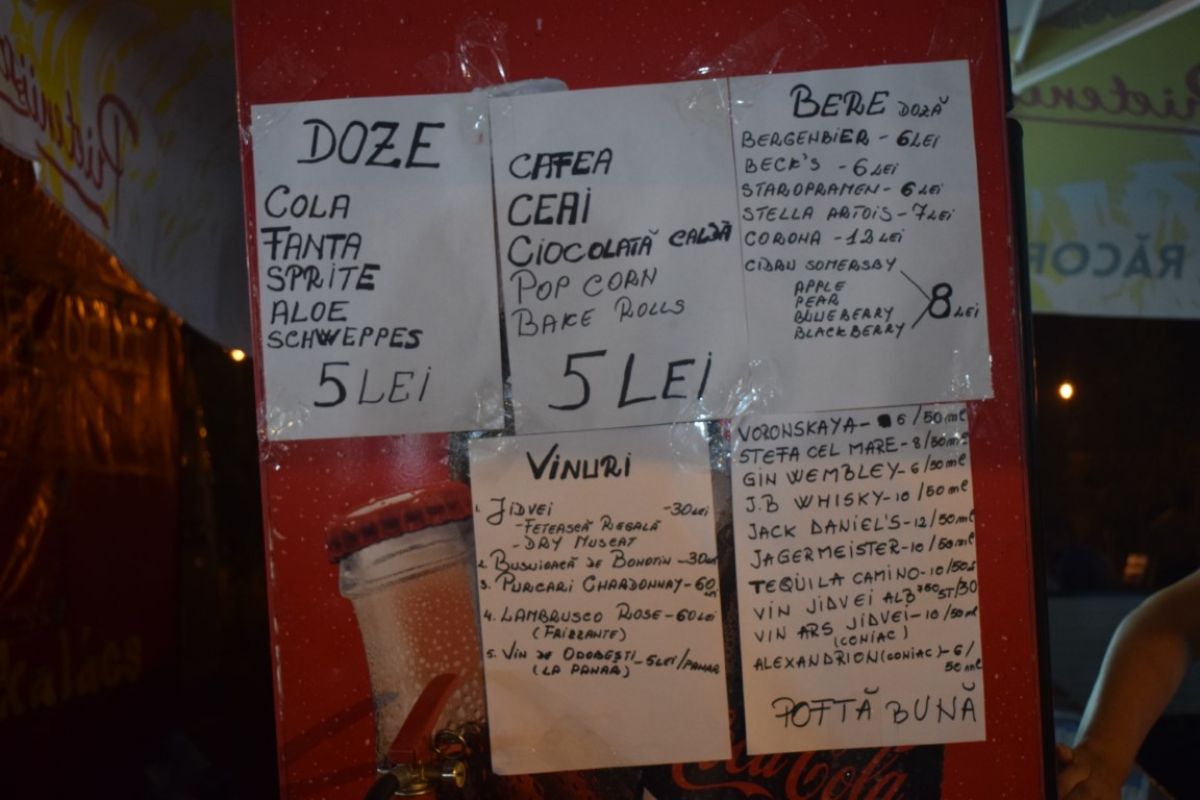 DOZE
COLA
FANTA
SPRITE
ALOE
SCHWEPPES
5 LEI
CAFEA
CEAI
CIOCOLATĂ CALDĂ
POP CORN
BAKE ROLLS
5 LEI
BERE DOZĂ
BERGENBIER - 6 LEI
BECK'S - 6 LEI
STAROPRAMEN - 6 LEI
STELLA ARTOIS - 7 LEI
CORONA - 12 LEI
CIDRU SOMERSBY
APPLE
PEAR
BLUEBERRY
BLACKBERRY
8 LEI
VINURI
1. JIDVEI - 30 LEI
- FETEASCĂ REGALĂ
- DRY MUSCAT
2. BUSUIOACĂ DE BOHOTIN - 30 LEI
3. PURCARI CHARDONNAY - 60 LEI
4. LAMBRUSCO ROSE - 60 LEI
(FRIZZANTE)
5. VIN DE ODOBEȘTI - 5 LEI/PAHAR
(LA PAHAR)
VORONSKAYA - 6/50 ml
STEFA CEL MARE - 8/50 ml
GIN WEMBLEY - 6/50 ml
J.B WHISKY - 10/50 ml
JACK DANIEL'S - 12/50 ml
JAGERMEISTER - 10/50 ml
TEQUILA CAMINO - 10/50
VIN JIDVEI ALB
VIN ARS JIDVEI - 10/50 ml
(CONIAC)
ALEXANDRION (CONIAC) - 6/
50 ml
POFTĂ BUNĂ
Coca Cola
Prieteni
RĂCOR
Kalács